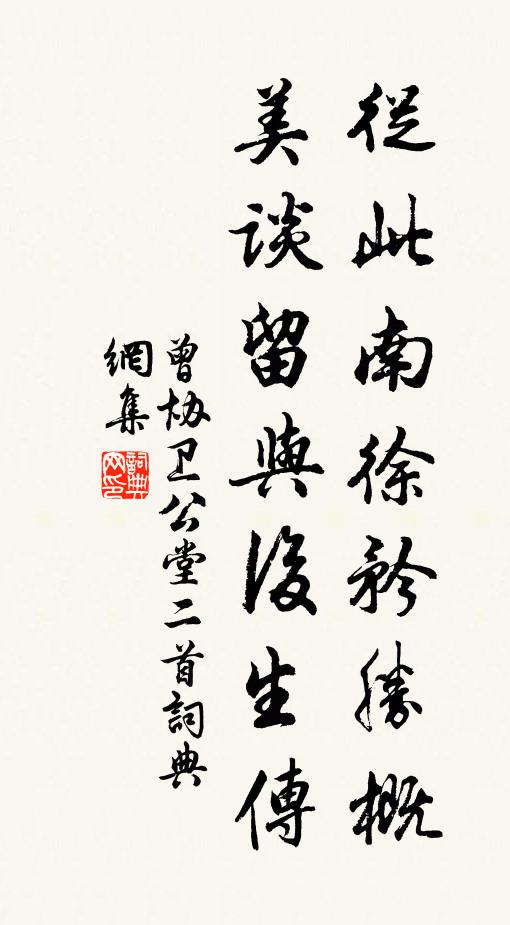 從此南徐矜勝概
美談留與後生傳
曾协卫公堂二首詞典
網集
詞典网印